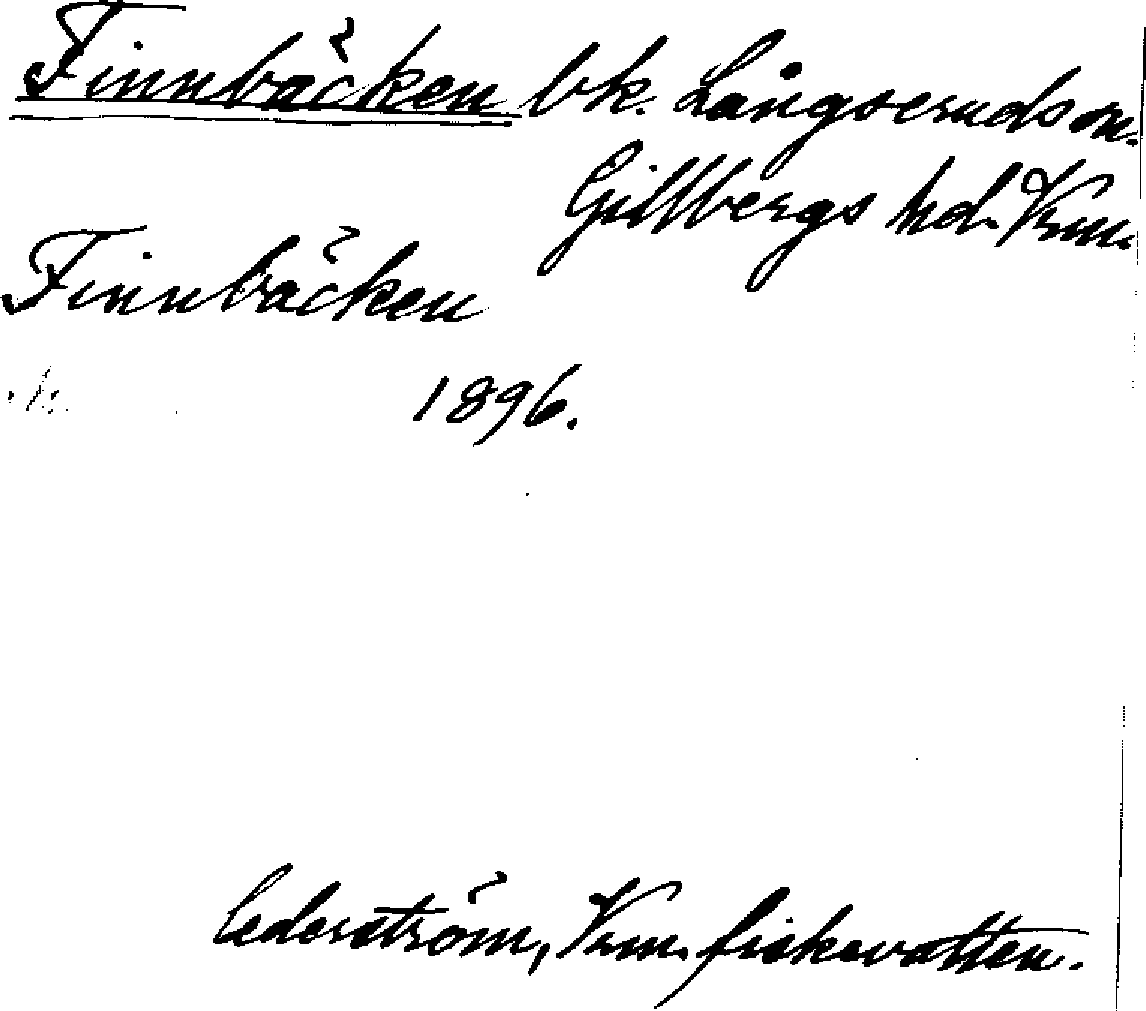 Finnbäcken bk. Långseruds sn.
Gillbergs hd. Vrm.
Finnbäcken
1896.
Cederström, Vrm. fiskevatten.